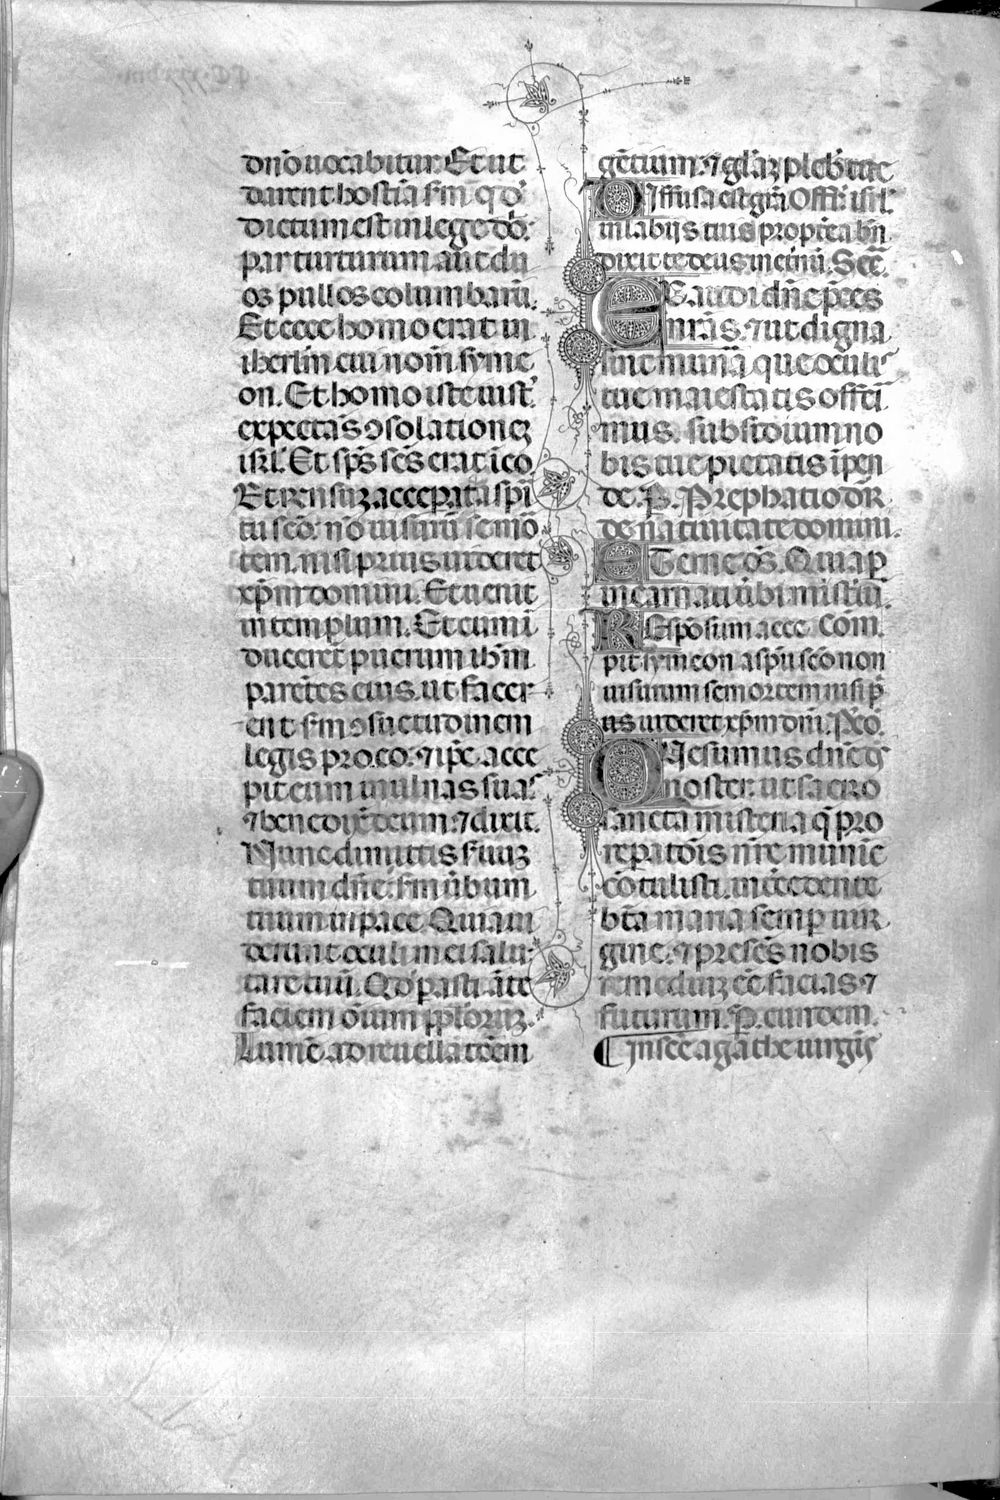 dn̄o uocabitur. Et ut
darent hostiā s̄m q̄ d̄
dictum est in lege dō:
par turturum aut du
os pullos columbarū.
Et ecce homo erat in
iherl̄m cui nom̄ syme
on. Et homo iste iust᾽
expectās ↄsolationeꝫ
isrl̄. Et sp̄s sc̄s erat ī eo.
Et rēnsuꝫ acceperata sp̄i
tu sc̄o: nō uisurū se mō
tem. nisi prius uideret
xp̄m domini. Et uenit
in templum. Et cum i
ducerēt puerum ih̄m
parētes eius. ut facer
ent s̄m ↄsuetudinem
legis pro eo. ⁊ ip̄e acce
pit eum in ulnas suas
⁊ bene dix̄ deum. ⁊ dixit.
Nunc dimittis seruuꝫ
tuum dn̄e: s̄m ūbum
tuum in pace. Quia ui
derunt oculi mei salu
tare tuū. Qd̓ parasti āte
faciem oīum pp̄loꝝ.
Lumē ad reuellatōem
gētium. ⁊ gl̄aꝫ pleb᾽ tue
Diffusa est gr̄a Offr̄. isrl̄.
in labijs tuis propt̄ea bn̄
dixit te deus in et̄nū. Secr̄.
Exaudi dn̄e p̄ces
nr̄as. ⁊ ut digna
sint mun̄a que oculis
tue maiestatis offeri
mus. subsidium no
bis tue pietatis īpen
de. P̄. Prephatio dr̄
de natiuitate domini.
Eterne d̄s. Quia p̄
incarnati ūbi mist̄iū.
Respōsum acce Com̄.
pit symeon a sp̄u sc̄o non
uisurum se mortem nisi p̄
us uideret xp̄m dn̄i. P̄co.
Quesumus dn̄e d̄s
noster: ut sacro
sancta misteria q̄ pro
reparatōis nr̄e munīe
cōtulisti. int̄cedente
bt̄a maria semp uir
gine. ⁊ presēs nobis
remediuꝫ eē facias ⁊
futurum. P̄. eundem.
¶ In sc̄e agathe uirgīs